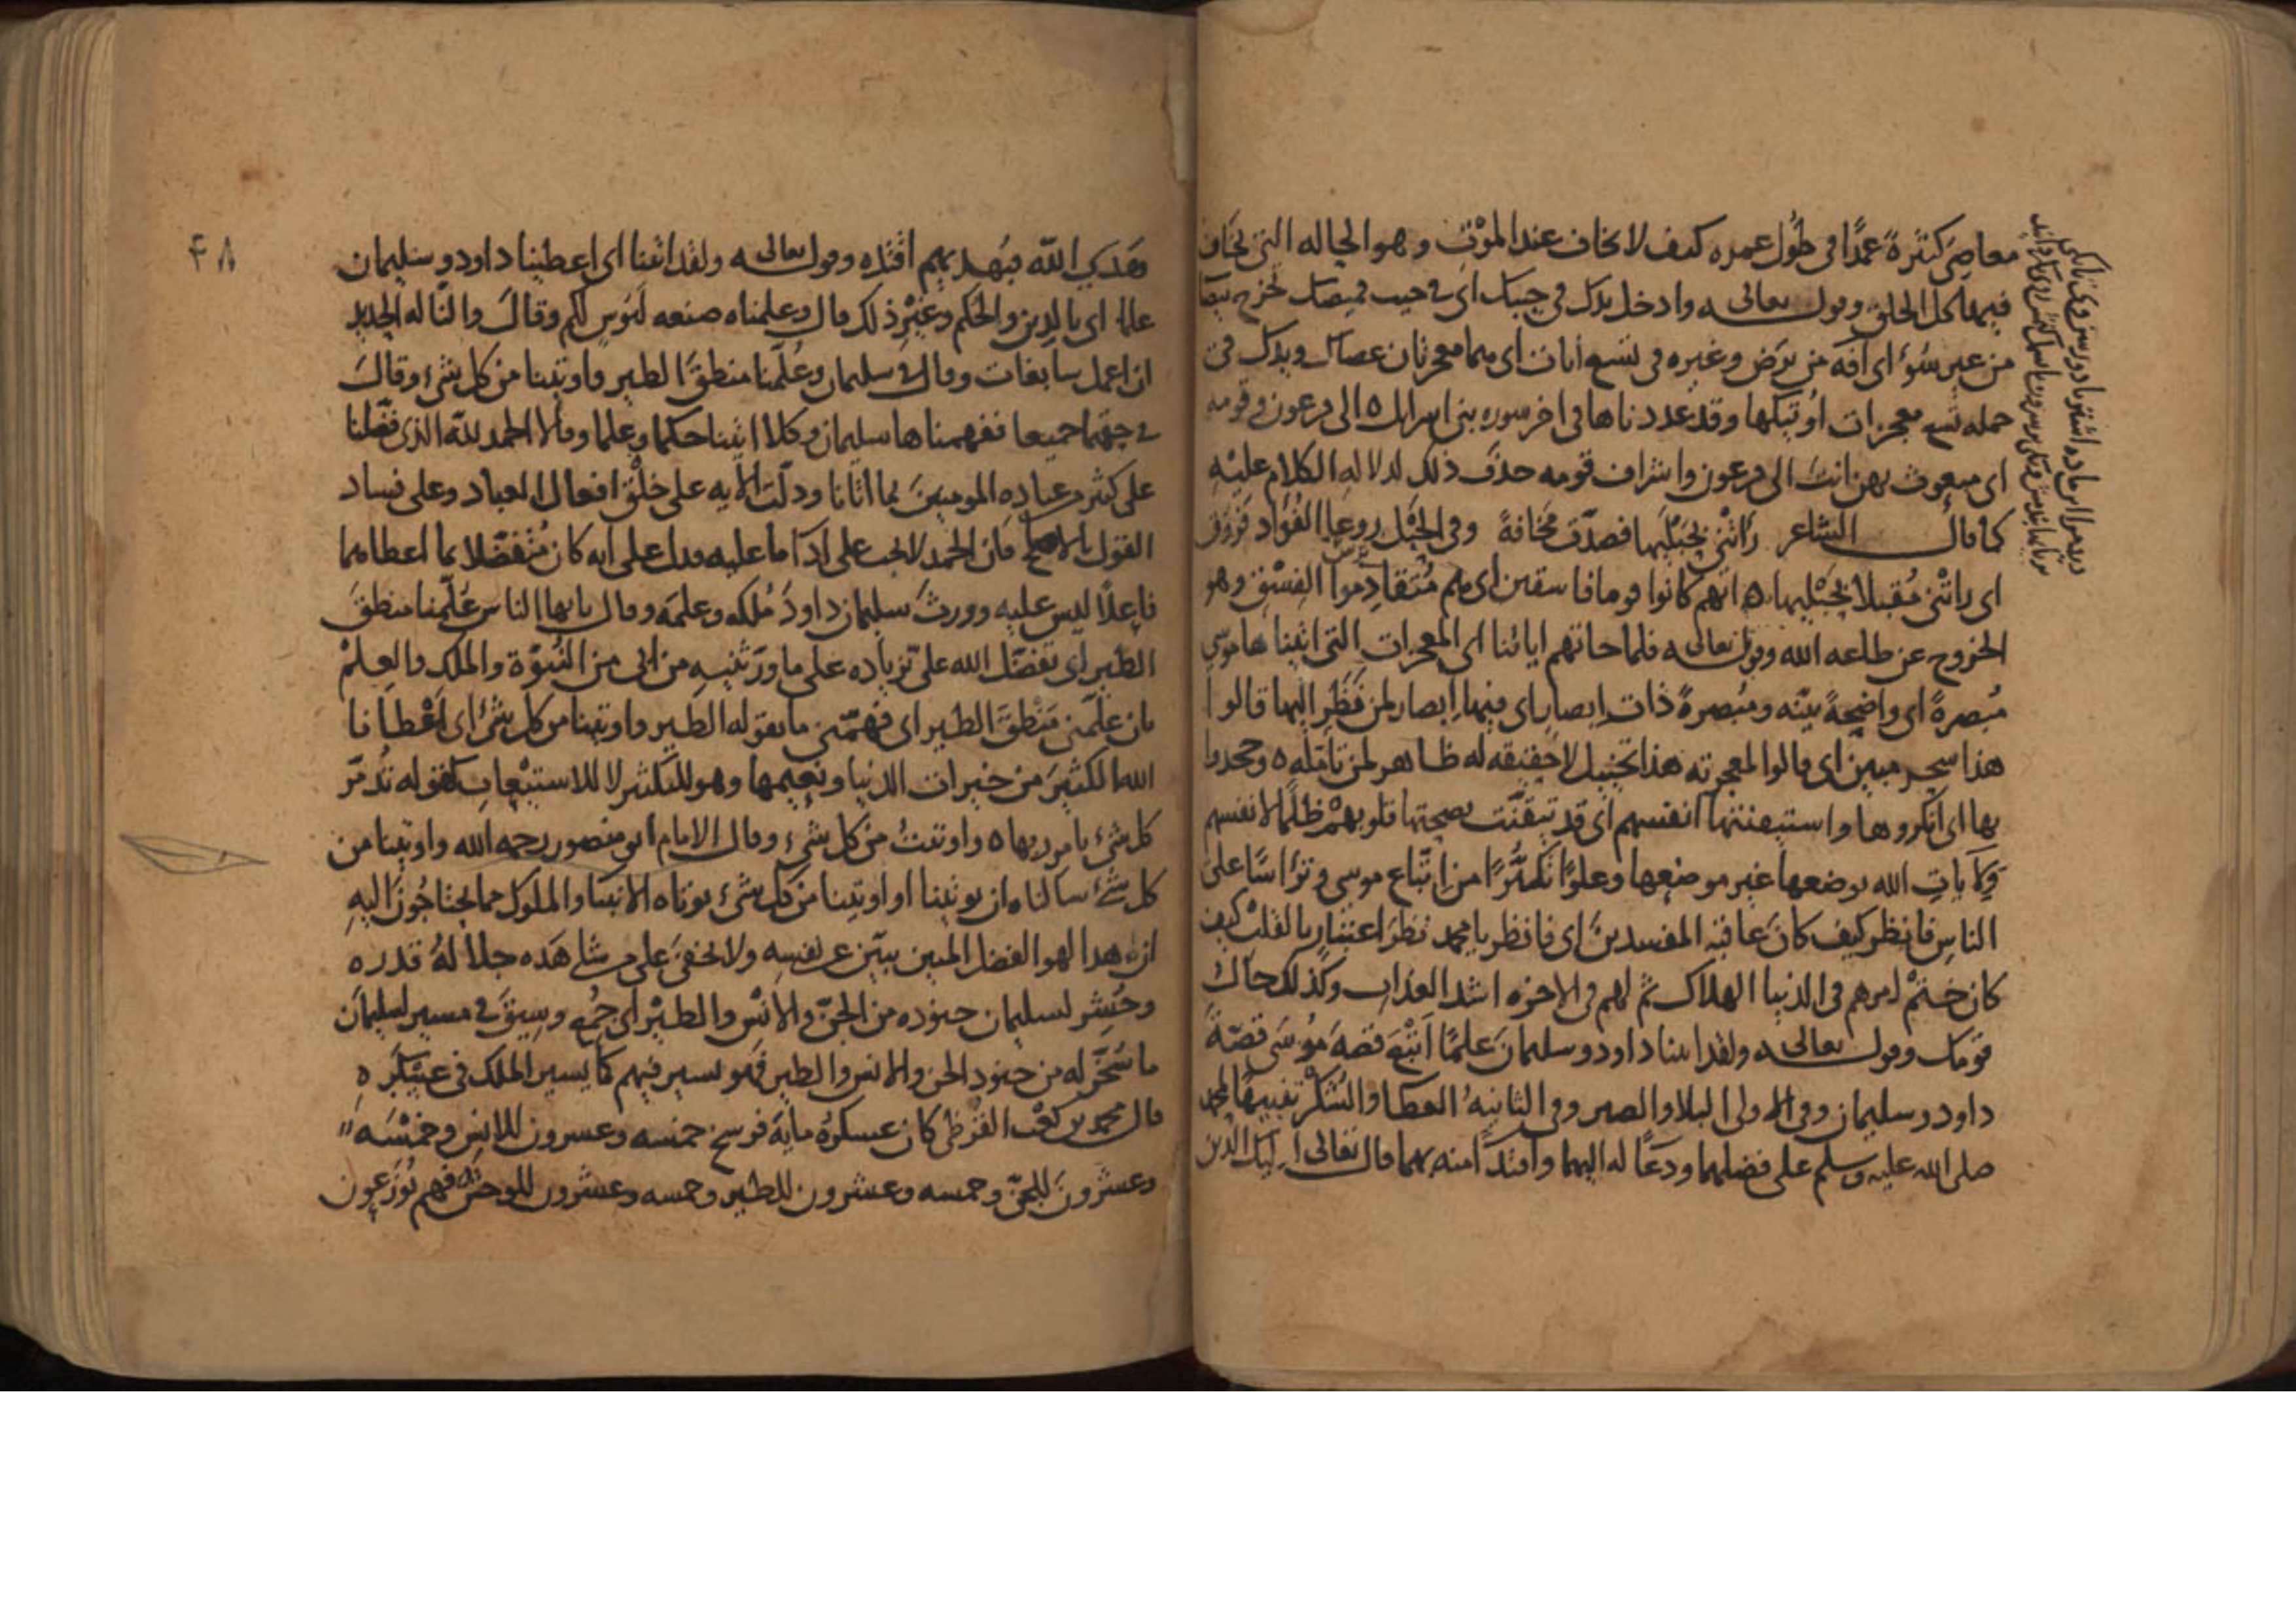 معاصي كثيرة عمدا في طول عمره كيف لا يخاف عند الموت وهو الحالة التي يخاف
فيها كل الخلق وقوله تعالى وادخل يدك في جيبك اى في جيب قميصك تخرج بيضا
من غير سوء اى آفة من برص وغيره في تسع ايات اى هما معجزتان عصاك ويدك في
جملة تسع معجزات اوتيتها وقد عددناها في اخر سورة بني اسرايل ه الى فرعون وقومه
اى مبعوث بهن انت الى فرعون واشراف قومه حذف ذلك لدلالة الكلام عليه
كما قال الشاعر رأتني بحبليها فصدت مخافة وفي الحبل روعا الفؤاد فروق
اى رأتني مقبلا بحبليها ه انهم كانوا قوما فاسقين اى هم متقادموا الفسق وهو
الخروج عن طاعة الله وقوله تعالى فلما جاتهم اياتنا اى المعجزات التي اتيناها موسى
مبصرة اى واضحة بينة ومبصرة ذات ابصار اى فيها ابصار لمن نظر اليها قالوا
هذا سحر مبين اى قالوا لمعجزته هذا تخييل لا حقيقة له ظاهر لمن تأمله ه وجحدوا
بها اى انكروها واستيقنتها انفسهم اى قد تيقنت بصحتها قلوبهم ظلما لانفسهم
ولايات الله بوضعها غير موضعها وعلوا تكبرا من اتباع موسى وترأسا على
الناس فانظر كيف كان عاقبة المفسدين اى فانظر يا محمد نظر اعتبار بالقلب كيف
كان ختم امرهم في الدنيا الهلاك ثم لهم في الاخرة اشد العذاب وكذلك حال
قومك وقوله تعالى ولقد اتينا داود وسليمان علما اتبع قصة موسى قصة
داود وسليمان وفي الاولى البلا والصبر وفي الثانية العطا والشكر تنبيها لمحمد
صلى الله عليه وسلم على فضلهما ودعا له اليهما واقتدا منه بهما قال تعالى اوليك الذين
هدى الله فبهديهم اقتده وقوله تعالى ولقد اتينا اى اعطينا داود وسليمان
علما اى بالدين والحكم وغير ذلك قال وعلمناه صنعة لبوس لكم وقال والنا له الحديد
ان اعمل سابغات وقال في سليمان وعلمنا منطق الطير واوتينا من كل شيء وقال
في حقهما جميعا ففهمناها سليمان وكلا اتينا حكما وعلما وقالا الحمد لله الذي فضلنا
على كثير من عباده المومنين بما اتانا ودلت الاية على خلق افعال العباد وعلى فساد
القول بالاصلح فان الحمد لا يجب على ادا ما عليه فدل على انه كان متفضلا بما اعطاهما
فاعلا ليس عليه وورث سليمان داود ملكه وعلمه وقال يايها الناس علمنا منطق
الطير اى تفضل الله علي زيادة على ما ورثنيه من ابي من النبوة والملك والعلم
بان علمني منطق الطير اى فهمني ما يقوله الطير واوتينا من كل شيء اى اعطانا
الله الكثير من خيرات الدنيا ونعيمها وهو للتكثير لا للاستيعاب كقوله تدمر
كل شيء بامر ربها ه واوتيت من كل شيء وقال الامام ابو منصور رحمه الله واوتينا من
كل شيء سالناه ان يوتينا او اوتينا من كل شيء يوتاه الانبيا والملوك مما يحتاجون اليه
ان هذا لهو الفضل المبين يبين عن نفسه ولا يخفى على من شاهده جلالة قدره
وحشر لسليمان جنوده من الجن والانس والطير اى جمع وسيق في مسير لسليمان
ما سخر له من جنود الجن والانس والطير فهو يسير فيهم كما يسير الملك في عسكره
قال محمد بن كعب القرظي كان عسكره ماية فرسخ خمسة وعشرون للانس وخمسة
وعشرون للجن وخمسة وعشرون للطير وخمسة وعشرون للوحش فهم يوزعون
۴۸